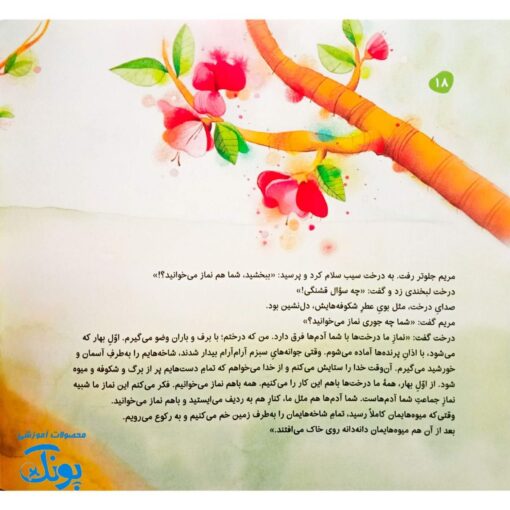 ۱۸
مریم جلوتر رفت. به درخت سیب سلام کرد و پرسید: «ببخشید، شما هم نماز می‌خوانید؟!»
درخت لبخندی زد و گفت: «چه سؤال قشنگی!»
صدایِ درخت، مثل بویِ عطرِ شکوفه‌هایش، دل‌نشین بود.
مریم گفت: «شما چه جوری نماز می‌خوانید؟»
درخت گفت: «نمازِ ما درخت‌ها با شما آدم‌ها فرق دارد. من که درختم؛ با برف و باران وضو می‌گیرم. اوّلِ بهار که
می‌شود، با اذانِ پرنده‌ها آماده می‌شوم. وقتی جوانه‌هایِ سبزم آرام‌آرام بیدار شدند، شاخه‌هایم را به‌طرفِ آسمان و
خورشید می‌گیرم. آن‌وقت خدا را ستایش می‌کنم و از خدا می‌خواهم که تمامِ دست‌هایم پر از برگ و شکوفه و میوه
شود. از اوّلِ بهار، همهٔ ما درخت‌ها باهم این کار را می‌کنیم. همه باهم نماز می‌خوانیم. فکر می‌کنم این نمازِ ما شبیه
نمازِ جماعتِ شما آدم‌هاست. شما آدم‌ها هم مثل ما، کنارِ هم به ردیف می‌ایستید و باهم نماز می‌خوانید.
وقتی‌که میوه‌هایمان کاملاً رسید، تمامِ شاخه‌هایمان را به‌طرفِ زمین خم می‌کنیم و به رکوع می‌رویم.
بعد از آن هم میوه‌هایمان دانه‌دانه روی خاک می‌افتند.»
محصولات آموزشی
پونک